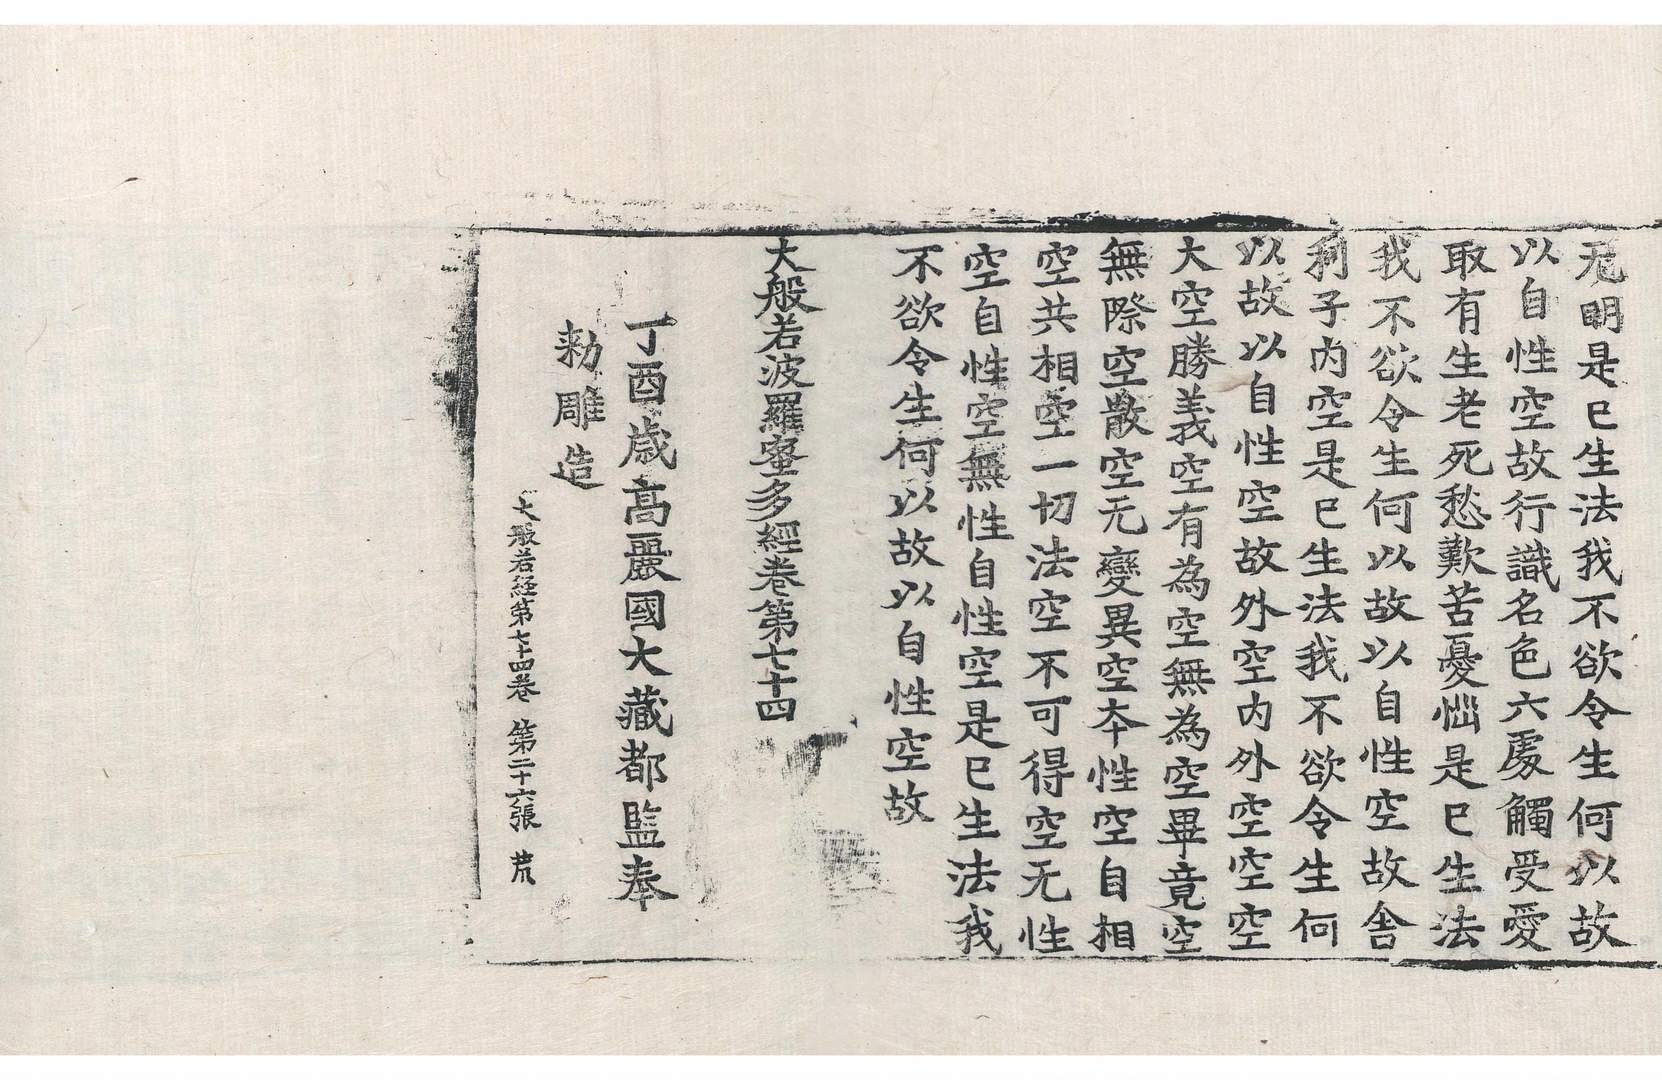 无明是已生法我不欲令生何以故
以自性空故行識名色六處觸受愛
取有生老死愁歎苦憂惱是已生法
我不欲令生何以故以自性空故舍
利子内空是已生法我不欲令生何
以故以自性空故外空内外空空空
大空勝義空有為空無為空畢竟空
無際空散空无變異空本性空自相
空共相空一切法空不可得空无性
空自性空無性自性空是已生法我
不欲令生何以故以自性空故
大般若波羅蜜多經卷第七十四
丁酉歲高麗國大藏都監奉
勅雕造
大般若經第七十四卷 第二十六張 荒